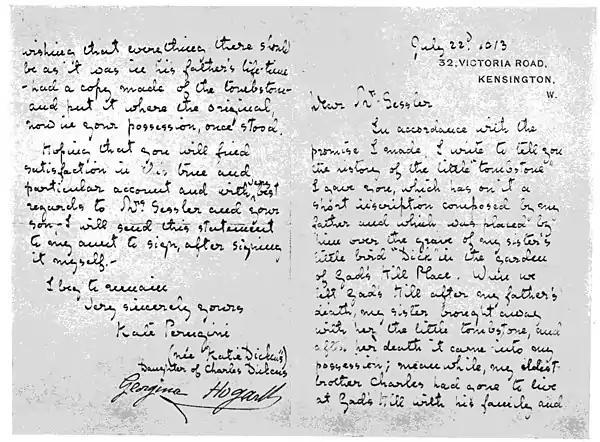 July 22d 1913
32, VICTORIA ROAD,
KENSINGTON,
W.
Dear Mr. Sessler
In accordance with the
promise I made I write to tell you
the history of the little "tombstone"
I gave you, which has on it a
short inscription composed by my
father and which was placed by
him over the grave of my sister's
little bird "Dick" in the Garden
of Gad's Hill Place. When we
left Gad's Hill after my father's
death, my sister brought away
with her the little tombstone, and
after her death it came into my
possession; meanwhile, my eldest
brother Charles had gone to live
at Gad's Hill with his family and
wishing that everything there should
be as it was in his father's life-time
- had a copy made of the tombstone
and put it where the original,
now in your possession, once stood.
Hoping that you will find
satisfaction in this true and
particular account and with very best
regards to Mrs Sessler and your
son - I will send this statement
to my aunt to sign, after signing
it myself. -
I beg to remain
Very sincerely yours
Kate Perugini
(née Katie Dickens)
Daughter of Charles Dickens
Georgina Hogarth